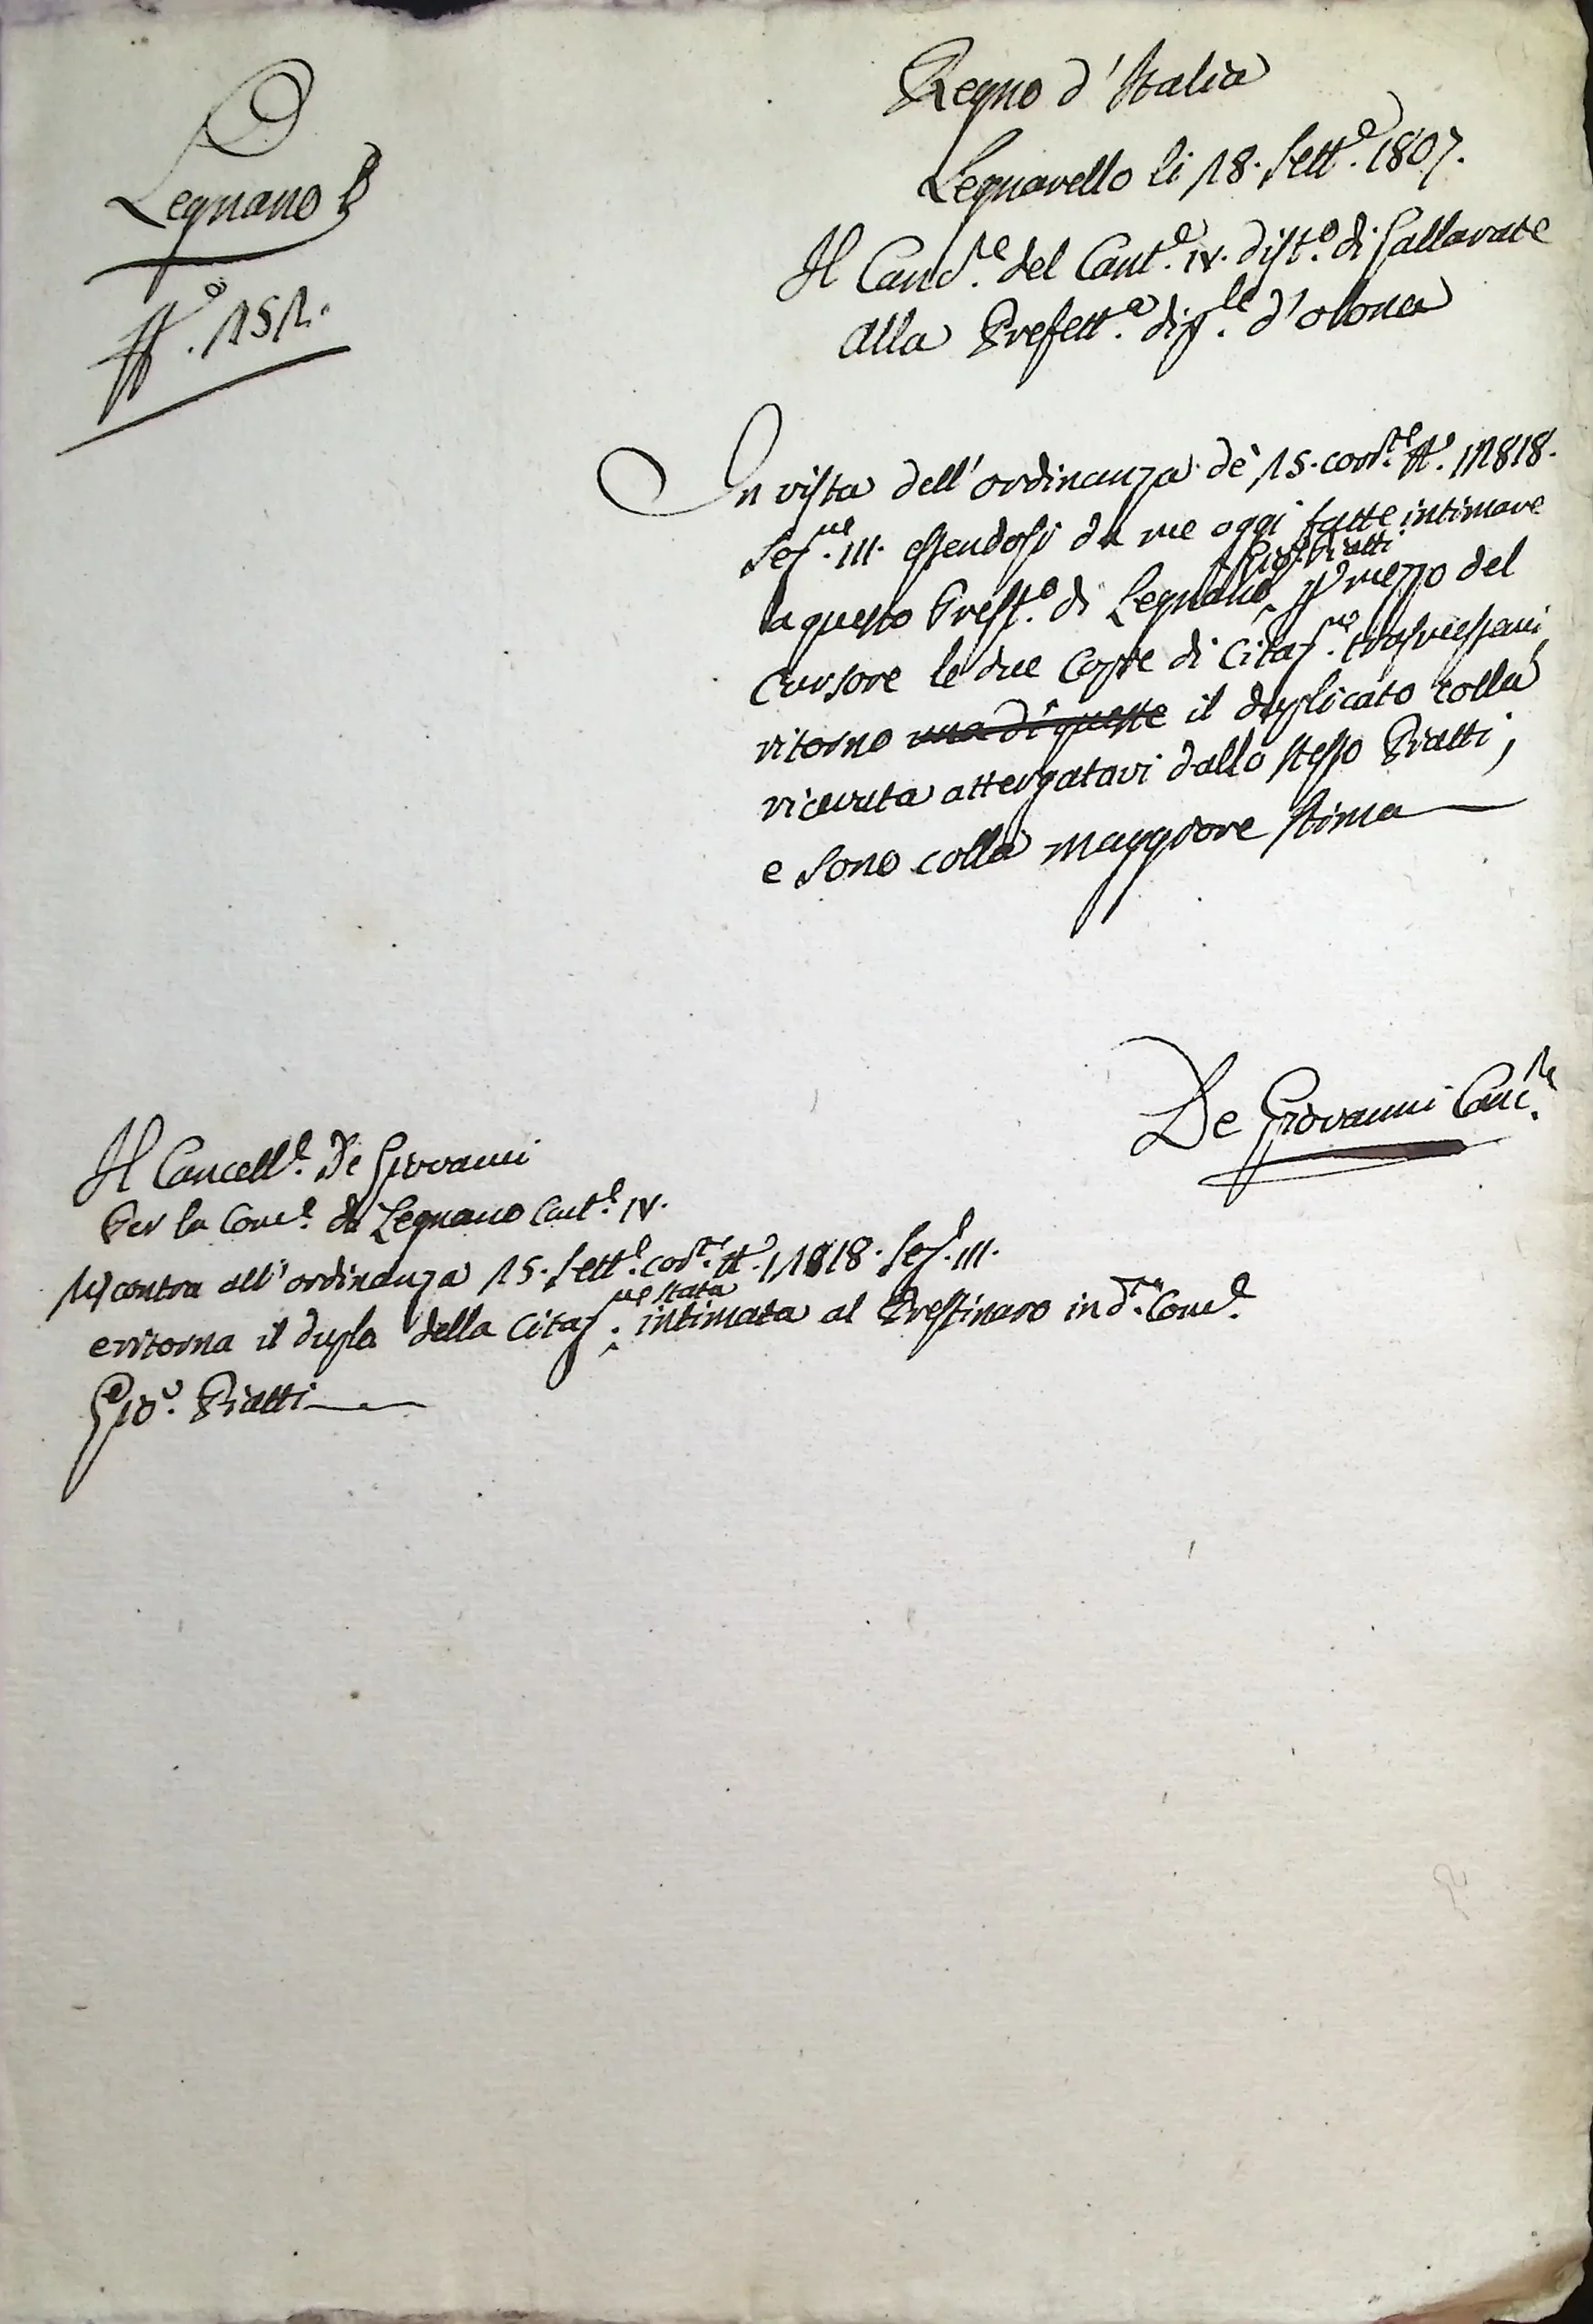 Legnano
N.° 151.
Regno d'Italia
Legnarello li 18. Sett.e 1807.
Il Canc.re del Cant.e IV. dist.o di Gallarate
alla Prefett.a dip.le d'olona
In vista dell'ordinanza de' 15. corr.te N.° 11818.
Sez.ne III. essendosi da me oggi fatte intimare
a questo Prest.o di Legnano Gio. Piatti p mezzo del
Cursore le due Copie di Citaz.ne trasmessami
ritorno una di queste il duplicato colla
ricevuta attergatavi dallo stesso Piatti;
e sono colla maggiore stima
De Giovanni Canc.re
Il Cancell.e De Giovanni
Per la Com.e di Legnano Cant.e IV.
Riscontra all'ordinanza 15. Sett.e cor.te N.° 11818. Sez.e III.
e ritorna il duplo della Citaz.ne stata intimata al Prestinaro in d.ta Com.e
Gio. Piatti